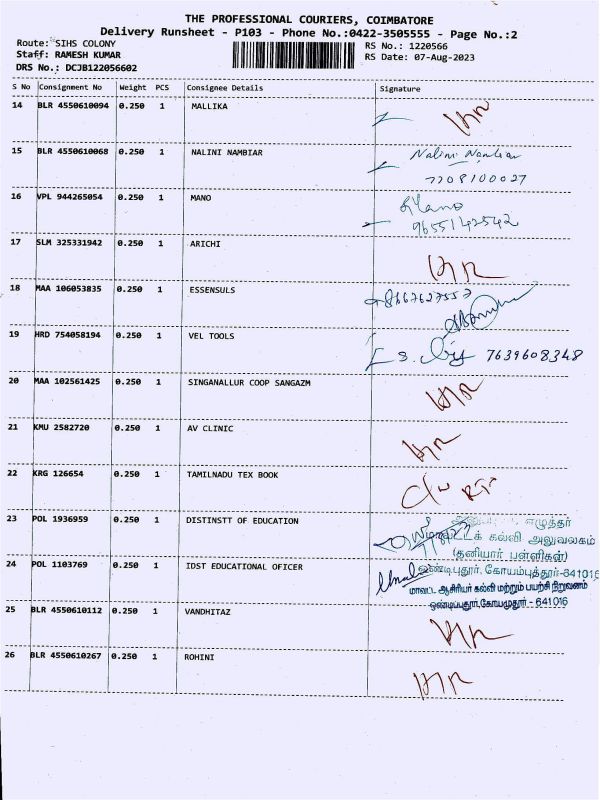 THE PROFESSIONAL COURIERS, COIMBATORE
Delivery Runsheet - P103 - Phone No.:0422-3505555 - Page No.:2
Route: SIHS COLONY
RS No.: 1220566
Staff: RAMESH KUMAR
RS Date: 07-Aug-2023
DRS No.: DCJB122056602
S No Consignment No Weight PCS Consignee Details Signature
14 BLR 4550610094 0.250 1 MALLIKA
15 BLR 4550610068 0.250 1 NALINI NAMBIAR Nalini Nambiar
7708100027
16 VPL 944265054 0.250 1 MANO Mano
9655142542
17 SLM 325331942 0.250 1 ARICHI
18 MAA 106053835 0.250 1 ESSENSULS 8667627557
19 HRD 754058194 0.250 1 VEL TOOLS 7639608348
20 MAA 102561425 0.250 1 SINGANALLUR COOP SANGAZM
21 KMU 2582720 0.250 1 AV CLINIC
22 KRG 126654 0.250 1 TAMILNADU TEX BOOK
23 POL 1936959 0.250 1 DISTINSTT OF EDUCATION
எழுத்தர்
கல்வி அலுவலகம்
(தனியார் பள்ளிகள்)
24 POL 1103769 0.250 1 IDST EDUCATIONAL OFICER
ஒண்டிபுதூர், கோயம்புத்தூர்-641016
மாவட்ட ஆசிரியர் கல்வி மற்றும் பயற்சி நிறுவனம்
ஒண்டிப்புதூர், கோயமுதூர் - 641016
25 BLR 4550610112 0.250 1 VANDHITAZ
26 BLR 4550610267 0.250 1 ROHINI